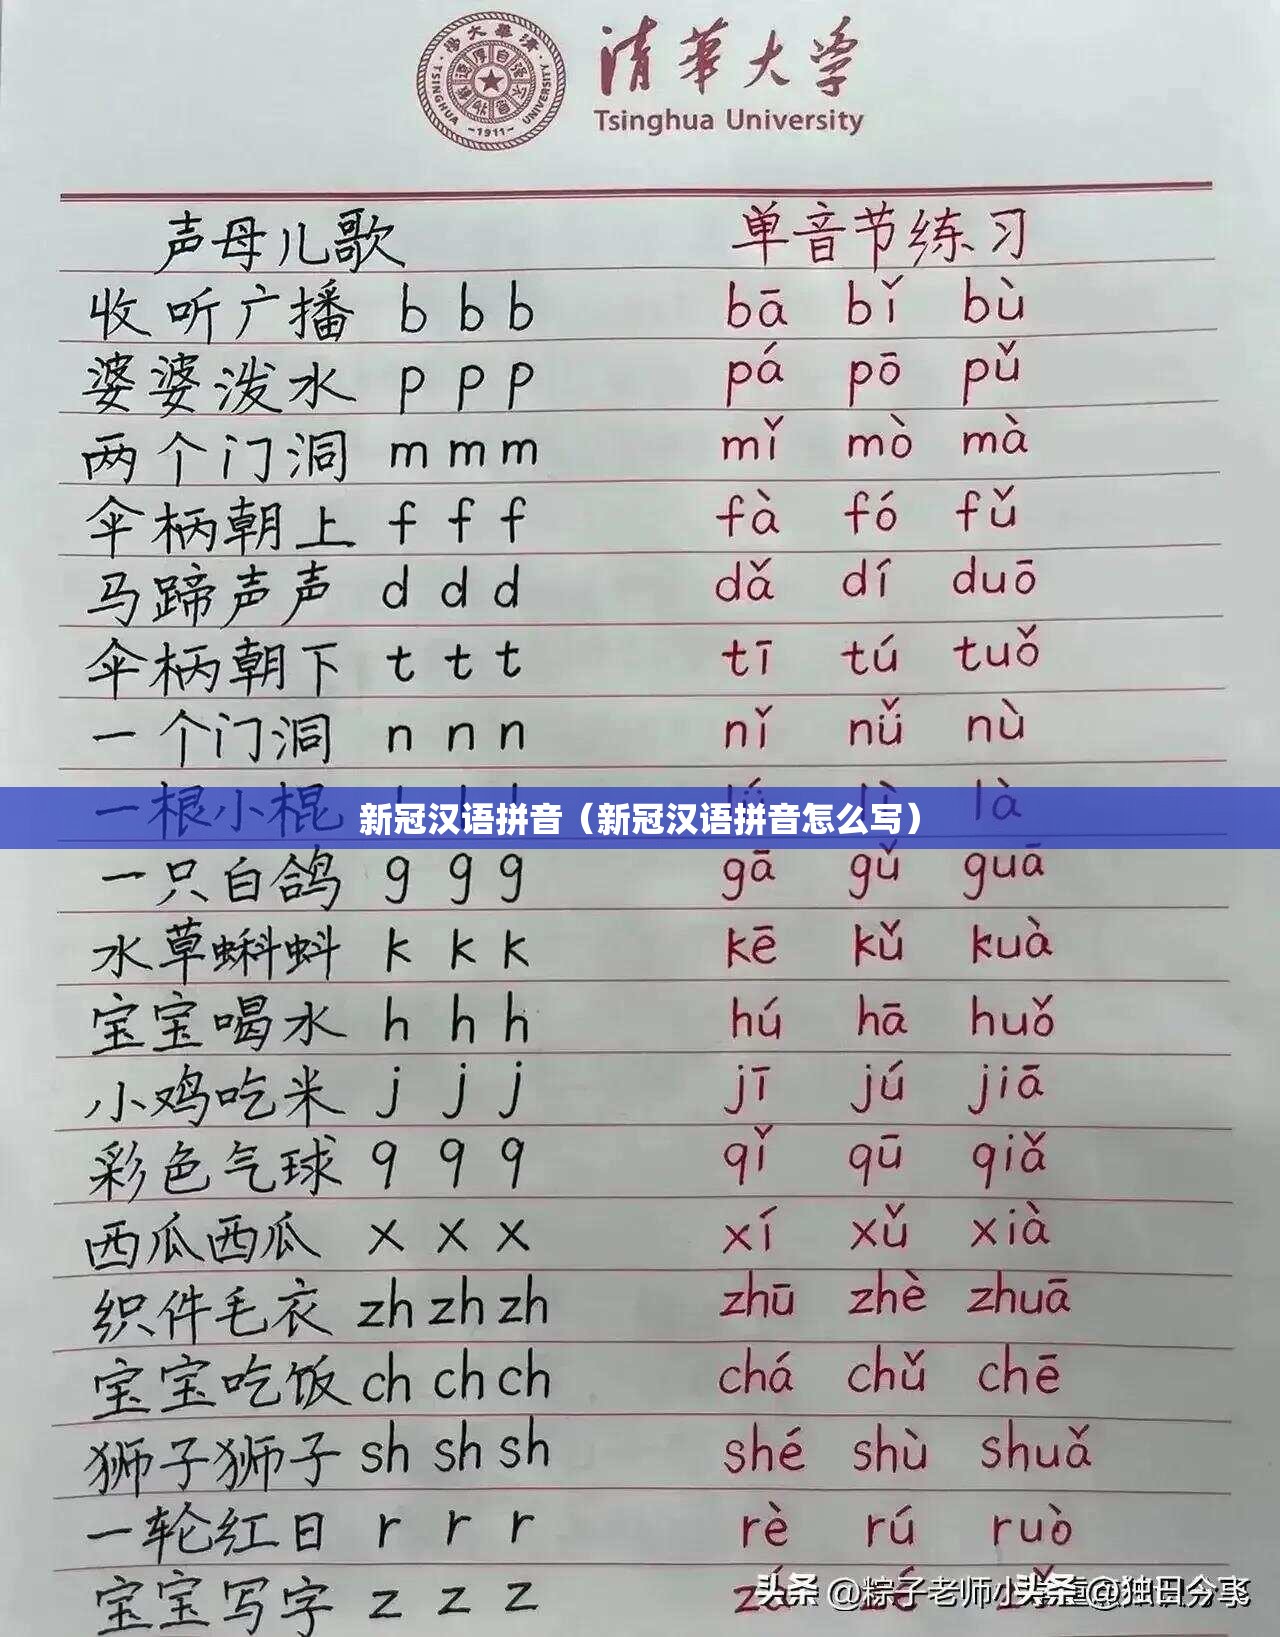 清華大學
Tsinghua University
TSINGHUA UNIVERSITY
-1911-
声母儿歌 单音节练习
收听广播 b b b bā bǐ bù
婆婆泼水 p p p pá pō pǔ
两个门洞 m m m mǐ mò mà
伞柄朝上 f f f fà fó fǔ
马蹄声声 d d d dǎ dí duō
伞柄朝下 t t t tī tú tuǒ
一个门洞 n n n nǐ nǚ nù
一根小棍 là
新冠汉语拼音（新冠汉语拼音怎么写）
一只白鸽 g g g gā gǔ guā
水草蝌蚪 k k k kē kǔ kuà
宝宝喝水 h h h hú hā huǒ
小鸡吃米 j j j jī jú jiā
彩色气球 q q q qǐ qū qiǎ
西瓜西瓜 x x x xí xǔ xià
织件毛衣 zh zh zh zhū zhè zhuā
宝宝吃饭 ch ch ch chá chǔ chē
狮子狮子 sh sh sh shé shù shuǎ
一轮红日 r r r rè rú ruò
宝宝写字 z z z zá
头条 @粽子老师小
头条 @独日分享